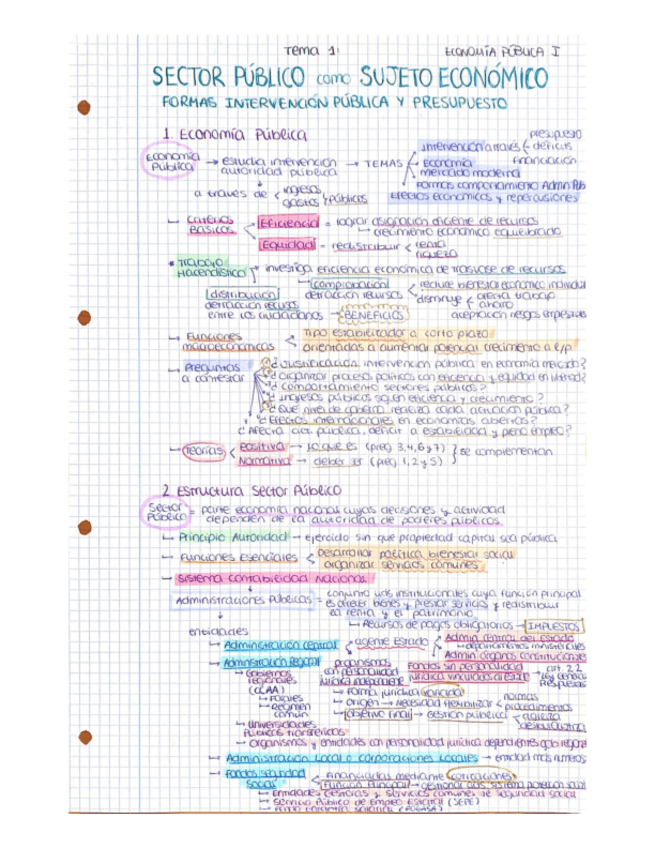 Tema 1: ECONOMÍA PÚBLICA I
SECTOR PÚBLICO como SUJETO ECONÓMICO
FORMAS INTERVENCIÓN PÚBLICA Y PRESUPUESTO
1. Economía Pública
Economía Pública → estudia intervención autoridad pública → TEMAS
intervención a través presupuesto déficits financiación
Economía mercado moderna
Formas comportamiento Admin Pub
Efectos económicos y repercusiones
a través de ingresos gastos públicos
Criterios Básicos
Eficiencia = lograr asignación eficiente de recursos
→ crecimiento económico equilibrado
Equidad = redistribuir renta riqueza
* Trabajo Hacendístico → investiga eficiencia económica de trasvase de recursos
comprobación detracción recursos
reduce bienestar económico individual
disminuye oferta trabajo ahorro
aceptación riesgos empresas
distribución detracción recursos entre los ciudadanos → BENEFICIOS
→ Funciones macroeconómicas
Tipo estabilizador a corto plazo
orientadas a aumentar potencial crecimiento a l/p
→ Preguntas a contestar
¿Justificación intervención pública en economía mercado?
¿Organizar procesos políticos con eficiencia y equidad en libertad?
¿comportamiento sectores públicos?
¿ingresos públicos según eficiencia y crecimiento?
¿Qué nivel de gobierno realiza cada actuación pública?
¿Efectos internacionales en economías abiertas?
¿Afecta act. pública, déficit a estabilidad y pleno empleo?
→ Teorías
Positiva → lo que es (preg 3,4,6 y 7)
Normativa → deber ser (preg 1,2 y 5)
se complementan
2. Estructura Sector Público
Sector Público = parte economía nacional cuyas decisiones y actividad
dependen de la autoridad de poderes públicos.
→ Principio Autoridad → ejercido sin que propiedad capital sea pública
→ Funciones Esenciales
Desarrollar política bienestar social
organizar servicios comunes
→ Sistema Contabilidad Nacional
Administraciones Públicas = conjunto uds institucionales cuya función principal
es ofrecer bienes y prestar servicios y redistribuir
la renta y el patrimonio
→ Recursos de pagos obligatorios → IMPUESTOS
entidades
→ Administración Central
agente Estado
Admin Central del Estado
→ departamentos ministeriales
Admin órganos constitucionales
organismos con personalidad jurídica independiente
Fondos sin personalidad jurídica vinculados al Estado → art. 2.2
→ Forma jurídica variada
→ origen → necesidad flexibilizar normas procedimientos
→ objetivo final → Gestión pública
→ Administración Regional
→ Gobiernos regionales (CCAA)
→ Forales
→ Régimen común
→ Universidades Públicas transferidas
→ organismos y entidades con personalidad jurídica dependientes gob regional
→ Administración Local o corporaciones Locales → entidad más numeros
→ Fondos seguridad social
Financiadas mediante cotizaciones
Función Principal → gestionar ads sistema protección social
→ Entidades Gestoras y servicios comunes de seguridad social
→ Servicio Público de Empleo Estatal (SEPE)
→ Fondo Garantía Salarial (FOGASA)